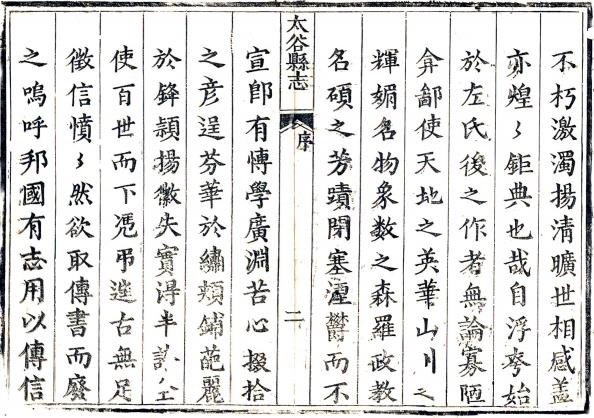 不朽激濁揚清曠世相感蓋
亦煌〻鉅典也哉自浮夸始
於左氏後之作者無論寡陋
弇鄙使天地之英華山川之
輝媚名物象數之森羅政教
名碩之芳蹟閉塞湮鬱而不
太谷縣志
序
二
宣卽有博學廣淵苦心掇拾
之彥逞芬華於繡頰鋪葩麗
於鋒頴揚徽失實得半訛
使百世而下憑弔遡古無足
徵信憤〻然欲取傳書而廢
之嗚呼邦國有志用以傳信